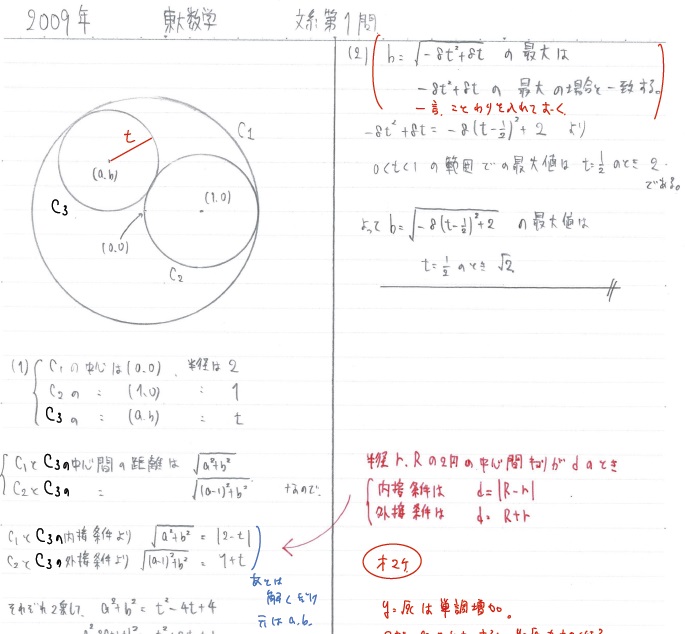 2009年 東大数学 文系第1問
C₁
t
(a.b)
C₃
(1.0)
(0.0)
C₂
(1) C₁の中心は(0.0)、半径は2
C₂の : (1.0) : 1
C₃の : (a.b) : t
C₁とC₃の中心間の距離は √a²+b²
C₂とC₃の = √(a-1)²+b² なので、
C₁とC₃の内接条件より √a²+b² = |2-t|
C₂とC₃の外接条件より √(a-1)²+b² = 1+t
あとは
解くだけ
元はa.b.
それぞれ2乗して、a²+b² = t²-4t+4
(2) b=√-8t²+8t の最大は
-8t²+8t の最大の場合と一致する。
一言、ことわりを入れておく
-8t²+8t = -8(t-1/2)²+2 より
0<t<1の範囲での最大値は t=1/2のとき 2
である。
よって b=√-8(t-1/2)²+2 の最大値は
t=1/2のとき √2
半径 r.Rの2円の中心間キョリがdのとき
内接条件は d=|R-r|
外接条件は d=R+r
y=√xは単調増加。